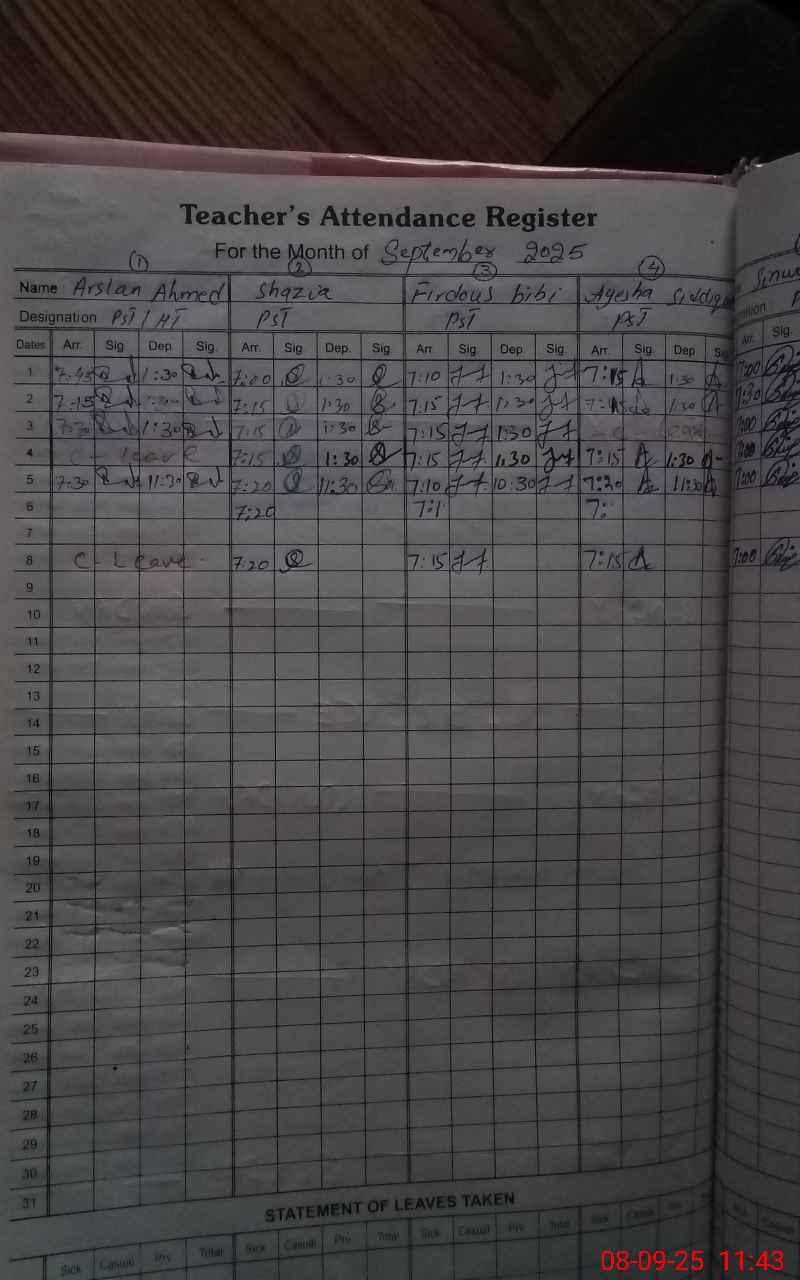 Teacher's Attendance Register
For the Month of September 2025
1 2 3 4
Name Arslan Ahmed Shazia Firdous bibi Ayesha
Designation PST / HT PST PST PST
Dates Arr. Sig. Dep. Sig. Arr. Sig. Dep. Sig. Arr. Sig. Dep. Sig. Arr. Sig. Dep Sig Arr. Sig.
1 7:45 1:30 7:00 1:30 7:10 1:30 7:15 1:30 7:00
2 7:15 7:15 1:30 7:15 1:30 7:15 1:30 7:30
3 7:30 1:30 7:15 1:30 7:15 1:30 7:00
4 C - leave 7:15 1:30 7:15 1:30 7:15 1:30 7:00
5 7:30 11:30 7:20 11:30 7:10 10:30 7:20 11:30 7:00
6 7:20 7:1 7:
7
8 C - Leave 7:20 7:15 7:15 7:00
9
10
11
12
13
14
15
16
17
18
19
20
21
22
23
24
25
26
27
28
29
30
31
STATEMENT OF LEAVES TAKEN
Sick Casual Prv. Total Sick Casual Prv. Total Sick Casual Prv. Total Sick Casual
08-09-25 11:43